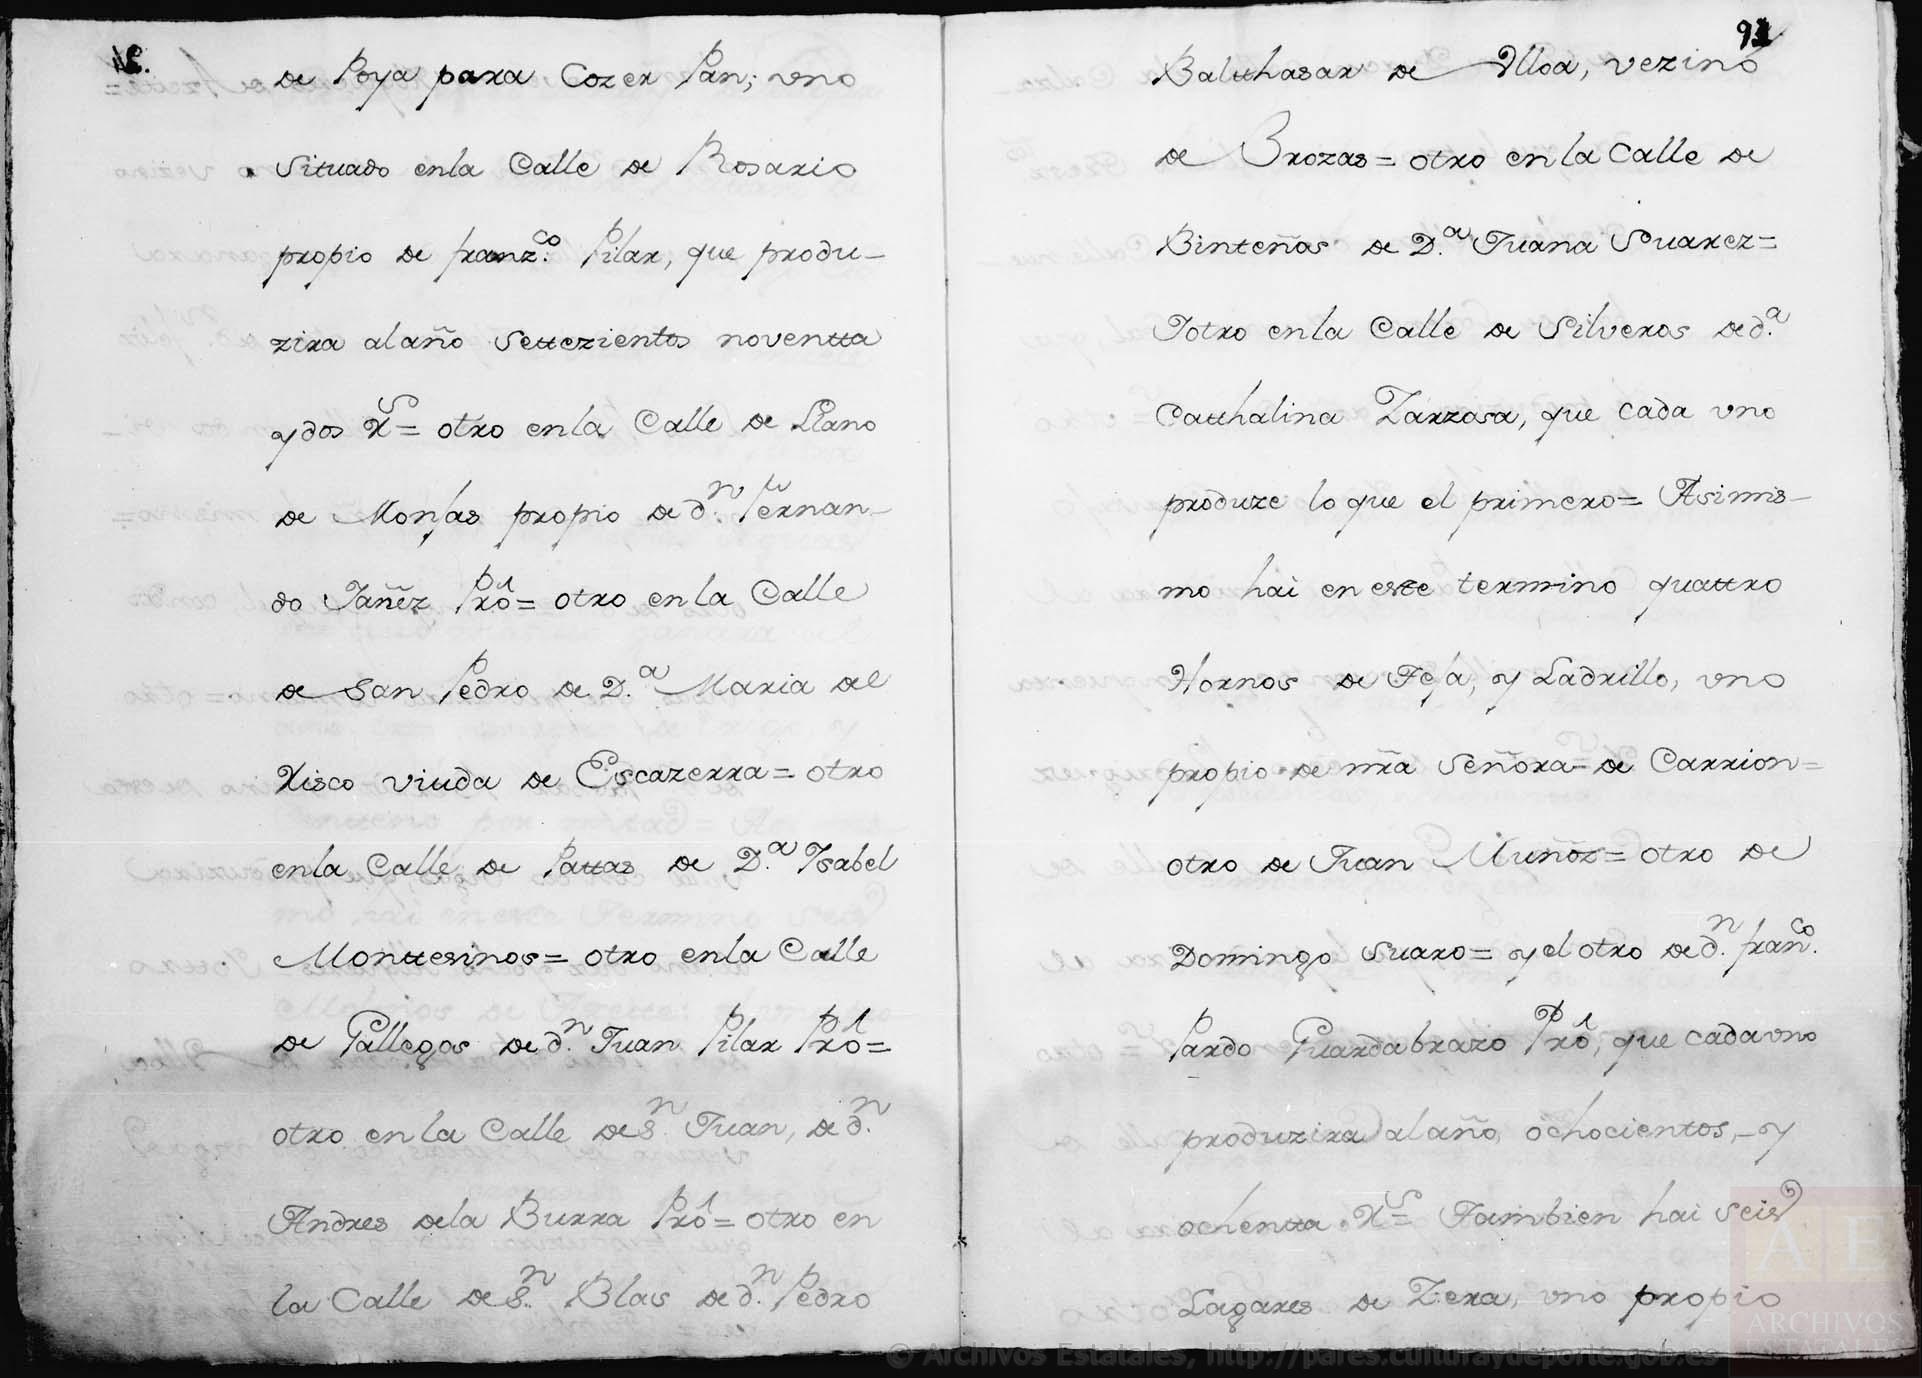 de Poya para Cozer Pan; vno
situado enla Calle de Rosario
propio de franz.co Pilar, que produ-
zira al año settezientos noventta
y dos rs= otro enla Calle de Llano
de Monjas propio de d.n Fernan-
do Iañez Pro= otro en la Calle
de San Pedro de D.a Maria del
Risco viuda de Escazerra= otro
enla Calle de Pattas de D.a Isabel
Monttesinos= otro enla Calle
de Gallegos de d.n Juan Pilar Pro=
otro en la Calle de S.n Juan, de d.n
Andres dela Burra Pro= otro en
la Calle de S.n Blas de d.n Pedro
91
Balthasar de Vlloa, vezino
de Brozas= otro en la Calle de
Binteñas de D.a Juana Suarez=
Iotro enla Calle de Silveros de d.a
Catthalina Zarzosa, que cada vno
produze lo que el primero= Asimis-
mo hai en este termino quattro
Hornos de Teja, y Ladrillo, vno
propio de nra Señora de Carrion=
otro de Juan Muñoz= otro de
Domingo Suaro= y el otro de d.n fran.co
Pardo Guardabrazo Pro, que cada vno
produzira al año, ochocientos, y
ochentta rs= Tambien hai seis
Lagares de Zera, vno propio
© Archivos Estatales, http://pares.culturaydeporte.gob.es
AE
ARCHIVOS
ESTATALES